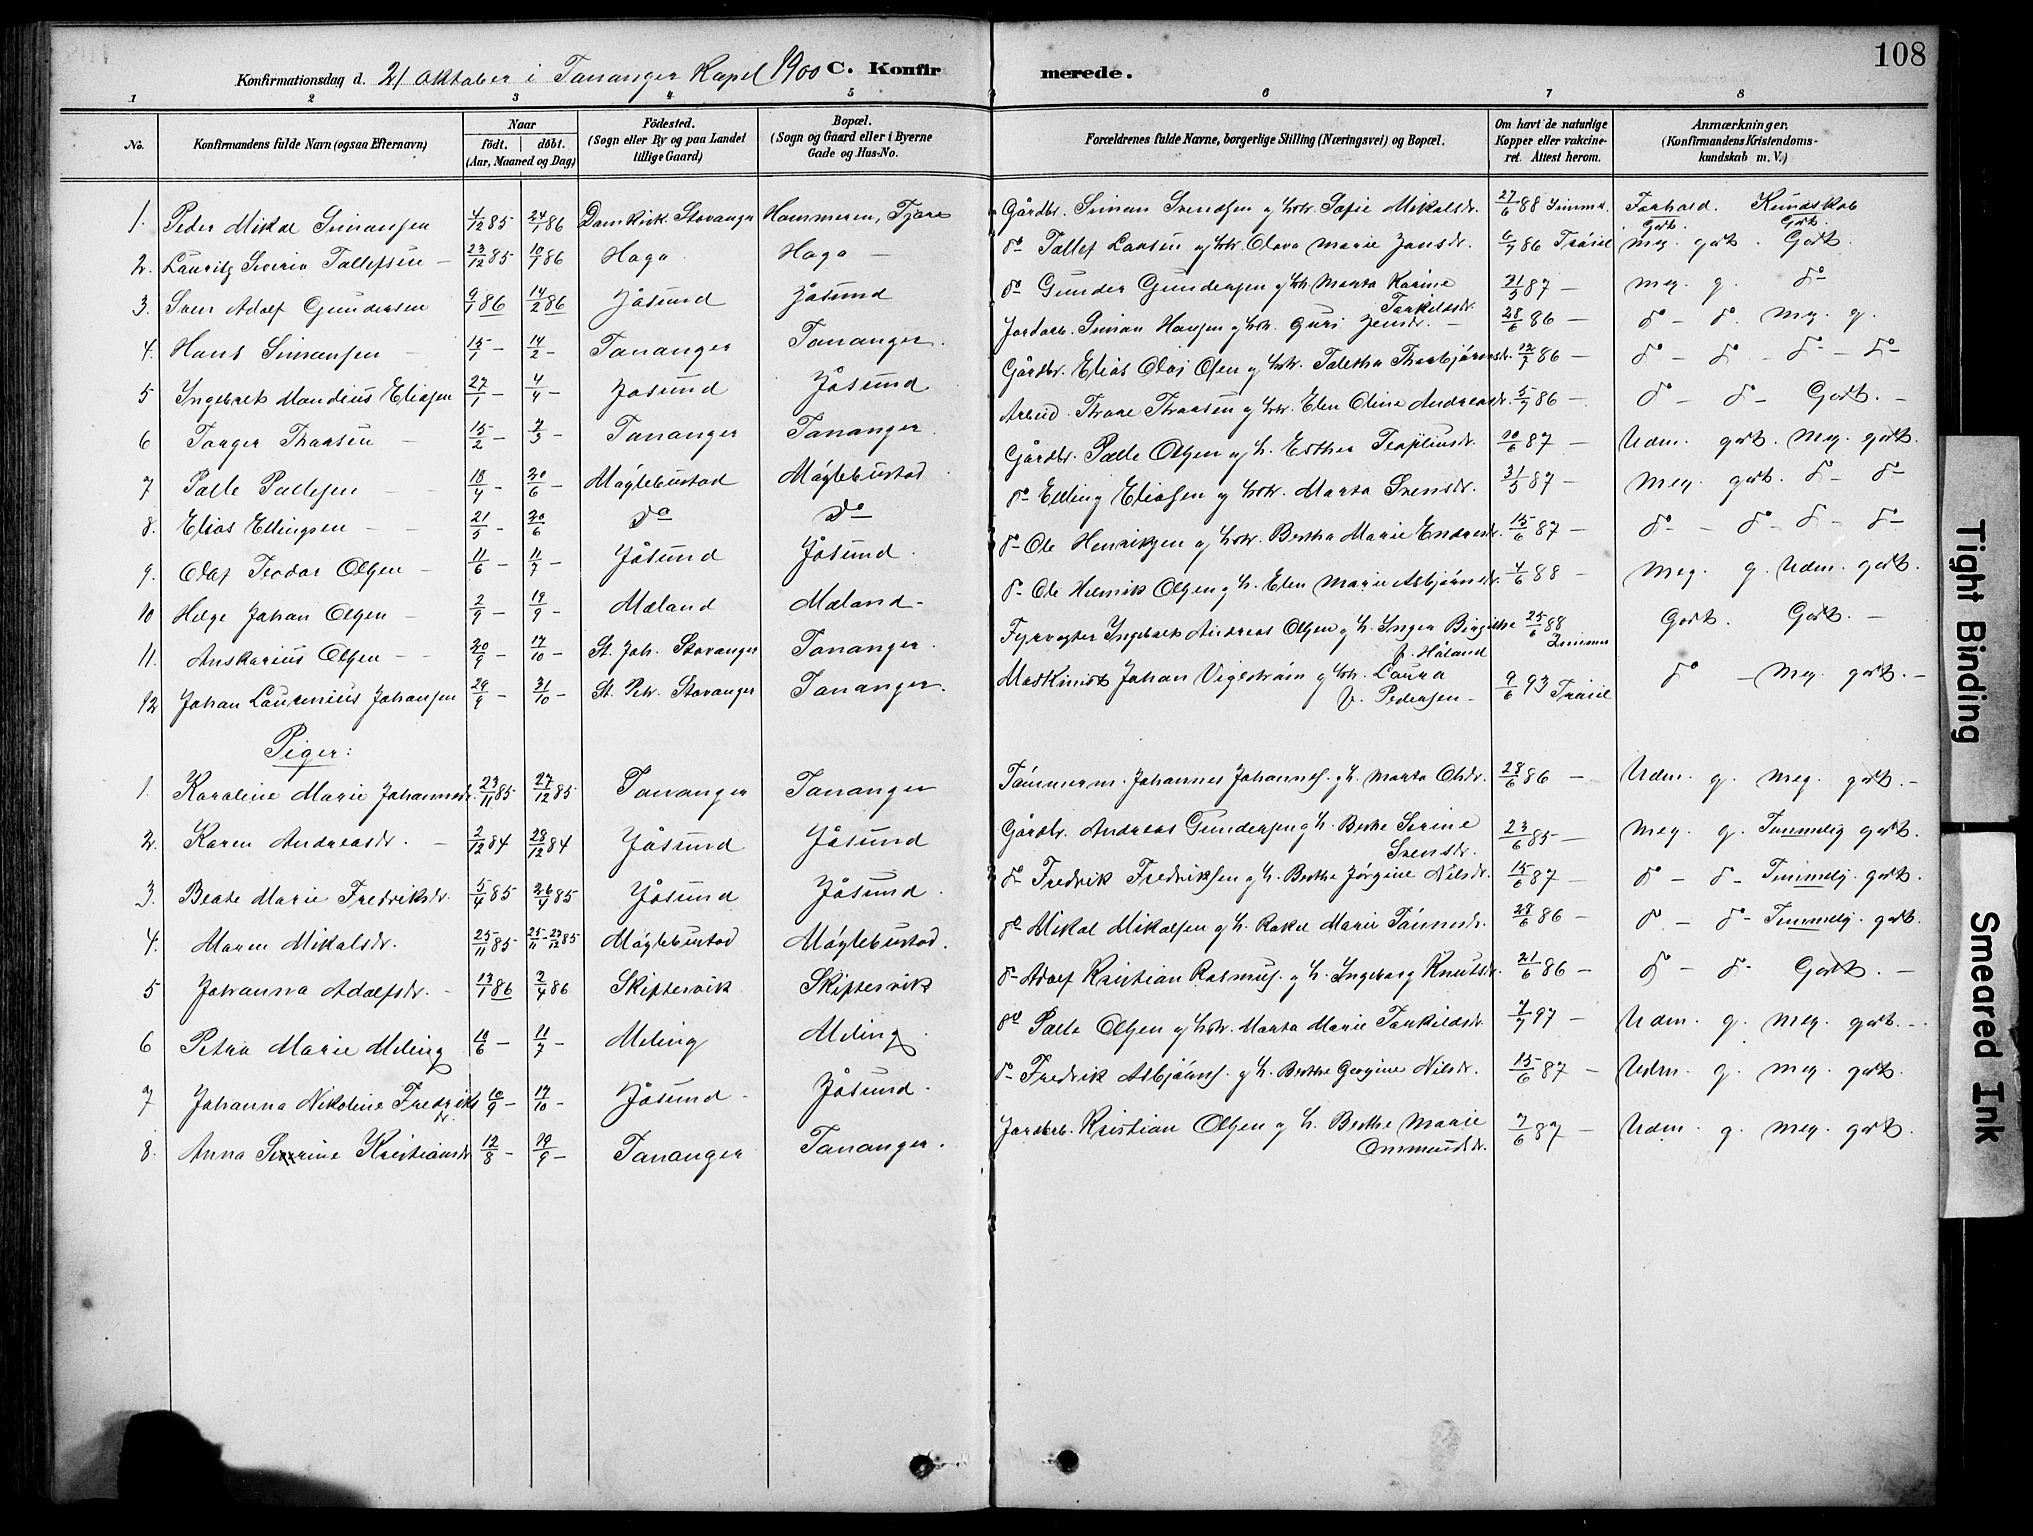 108
Konfirmationsdag d. 21 Oktober i Tananger Kapel 1900 C. Konfirmerede.
1 2 3 4 5 6 7 8
No. Konfirmandens fulde Navn (ogsaa Efternavn) Naar födt. döbt. (Aar, Maaned og Dag) Födested. (Sogn eller By og paa Landet tillige Gaard) Bopæl. (Sogn og Gaard eller i Byerne Gade og Hus-No. Forældrenes fulde Navne, borgerlige Stilling (Næringsvei) og Bopæl. Om havt de naturlige Kopper eller vakcineret. Attest herom. Anmærkninger. (Konfirmandens Kristendomskundskab m. V.)
1. Peder Mikal Simonsen 4/12 85 24/1 86 Domkirk. Stavanger Hammeren, Tjora Gårdbr. Simon Svendsen og hstr. Sofie Mikalsdr. 27/6 88 Forhold. Godt. Kundskab Godt.
2. Lauritz Severin Tollefsen 23/12 85 10/1 86 Haga Haga do Tollef Larsen og hstr. Olava Marie Jonsdr. 6/7 86 meg. godt. Godt.
3. Sven Adolf Gundersen 9/1 86 14/2 86 Jåsund Jåsund do Gunder Gundersen og h. Marta Karine Torkildsdr. 21/5 87 meg. g. do
4. Hans Simonsen 15/1 14/2 Tananger Tananger. Jordarb. Simon Hansen og hstr. Guri Jensdr. 28/6 86 do do meg. g.
5 Ingebrek Mandius Eliasen 27/1 4/4 Jåsund Jåsund Gårdbr. Elias Olaj Olsen og hstr. Taletha Thorbjørnsdr. 12/7 86 do do do do
6 Torger Thorsen 15/2 7/3 Tananger Tananger. Arbeid. Thore Thorsen og hstr. Elen Oline Andreasdr. 5/7 86 do do Godt.
7 Palle Pallesen 18/4 20/6 Møglebustad Møglebustad Gårdbr. Palle Olsen og h. Esther Teofilusdr. 10/6 87 Udm. godt. Meg. godt.
8. Elias Ellingsen 21/5 20/6 do do do Elling Eliasen og hstr. Marta Svensdr. 31/5 87 Meg. godt. do do
9. Olaf Teodor Olsen 11/6 11/7 Jåsund Jåsund. do Ole Henriksen og hstr. Bertha Marie Endresdr. 15/6 87 do do do do
10 Helge Johan Olsen 2/9 19/9 Mæland Mæland do Ole Helmik Olsen og h. Elen Marie Asbjørnsdr. 4/6 88 Meg. g. Udm. godt.
11. Anskarius Olsen 20/9 17/10 St. Joh. Stavanger Tananger. Fyrvogter Ingebrek Andreas Olsen og h. Inger Birgitte f. Håland 25/6 88 Godt. Godt.
12 Johan Laurenius Johansen 29/9 31/10 St. Petr. Stavanger Tananger. Maskinist Johan Vigestrøm og hstr. Laura f. Pedersen 9/6 93 do meg. godt.
Piger:
1. Karoline Marie Johannesdr. 23/11 85 27/12 85 Tananger Tananger Tømmerm. Johannes Johannes. og h. Marta Olsdr. 28/6 86 Udm. g. meg. godt.
2. Karen Andreasdr. 2/12 84 28/12 84 Jåsund Jåsund Gårdbr. Andreas Gundersen og h. Berthe Serine Svensdr. 23/6 85 Meg. g. Temmelig godt.
3. Beate Marie Fredriksdr. 5/4 85 26/4 85 Jåsund Jåsund. do Fredrik Fredriksen og h. Berthe Jørgine Nilsdr. 15/6 87 do do Temmelig. godt.
4. Maren Mikalsdr. 25/11 85 25/11 27/12 85 Møglebustad Møglebustad. do Mikal Mikalsen og h. Rakel Marie Tønnesdr. 28/6 86 do do Temmelig. godt.
5 Johanna Adolfsdr. 17/1 86 2/4 86 Skiftesvik Skiftesvik do Adolf Kristian Rasmus. og h. Ingeborg Knutsdr. 21/6 86 do do Godt.
6 Petra Marie Meling 10/6 11/7 Meling Meling. do Palle Olsen og hstr. Marta Marie Torkildsdr. 7/7 97 Udm. g. meg. godt.
7 Johanna Nikoline Fredriksdr. 10/9 17/10 Jåsund Jåsund. do Fredrik Asbjørns. og h. Berthe Gorgine Nilsdr. 15/6 87 Udm. g. meg. godt.
8. Anna Serine Kristiansdr. 12/8 19/9 Tananger Tananger. Jordarb. Kristian Olsen og h. Berthe Marie Ommundsdr. 7/6 87 Udm. g. meg. godt.
Tight Binding
Smeared Ink